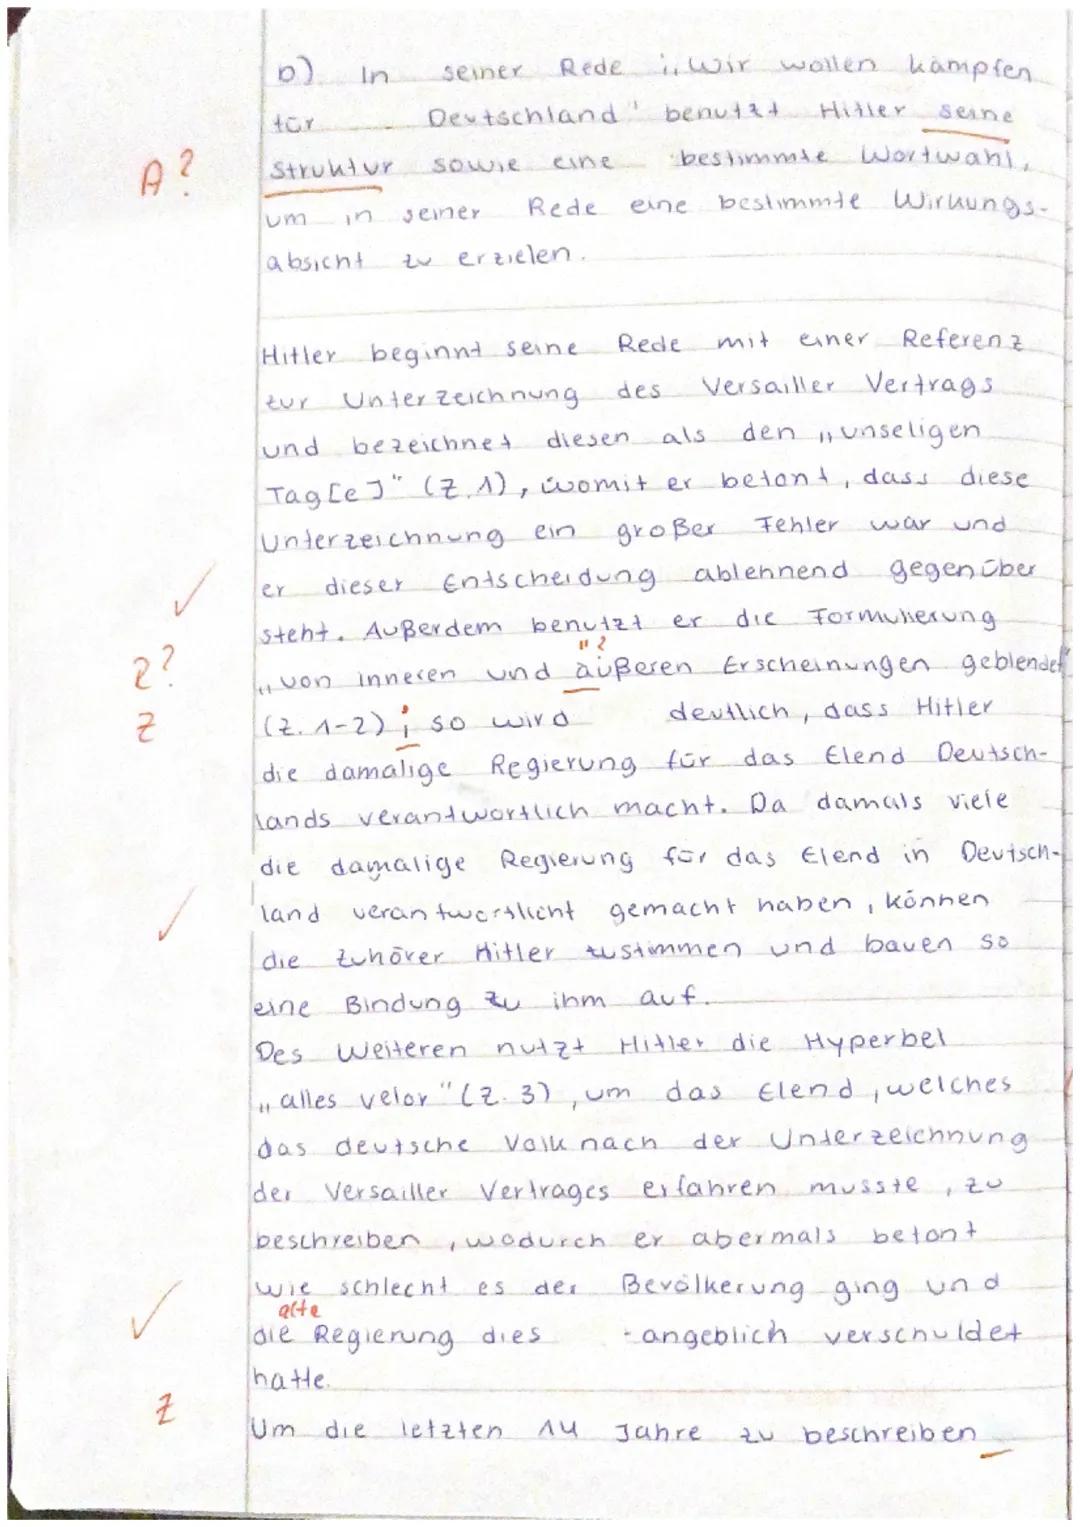 b) In seiner Rede „Wir wollen kämpfen
für Deutschland" benutzt Hitler seine
A? Struktur sowie eine bestimmte Wortwahl,
um in seiner Rede eine bestimmte Wirkungs-
absicht zu erzielen.
Hitler beginnt seine Rede mit einer Referenz
zur Unterzeichnung des Versailler Vertrags
und bezeichnet diesen als den „unseligen
Tag[e]" (Z.1), womit er betont, dass diese
Unterzeichnung ein großer Fehler war und
er dieser Entscheidung ablehnend gegenüber
✓
steht. Außerdem benutzt er die Formulierung
"?
R? „von inneren und äußeren Erscheinungen geblendet"
Z (Z. 1-2); so wird deutlich, dass Hitler
die damalige Regierung für das Elend Deutsch-
lands verantwortlich macht. Da damals viele
die damalige Regierung für das Elend in Deutsch-
✓ land verantwortlicht gemacht haben, können
die Zuhörer Hitler zustimmen und bauen so
eine Bindung zu ihm auf.
Des Weiteren nutzt Hitler die Hyperbel
„alles velor" (Z. 3), um das Elend, welches
das deutsche Volk nach der Unterzeichnung
der Versailler Vertrages erfahren musste, zu
beschreiben, wodurch er abermals betont
wie schlecht es der Bevölkerung ging und
alte
✓ die Regierung dies angeblich verschuldet
hatte.
Z Um die letzten 14 Jahre zu beschreiben